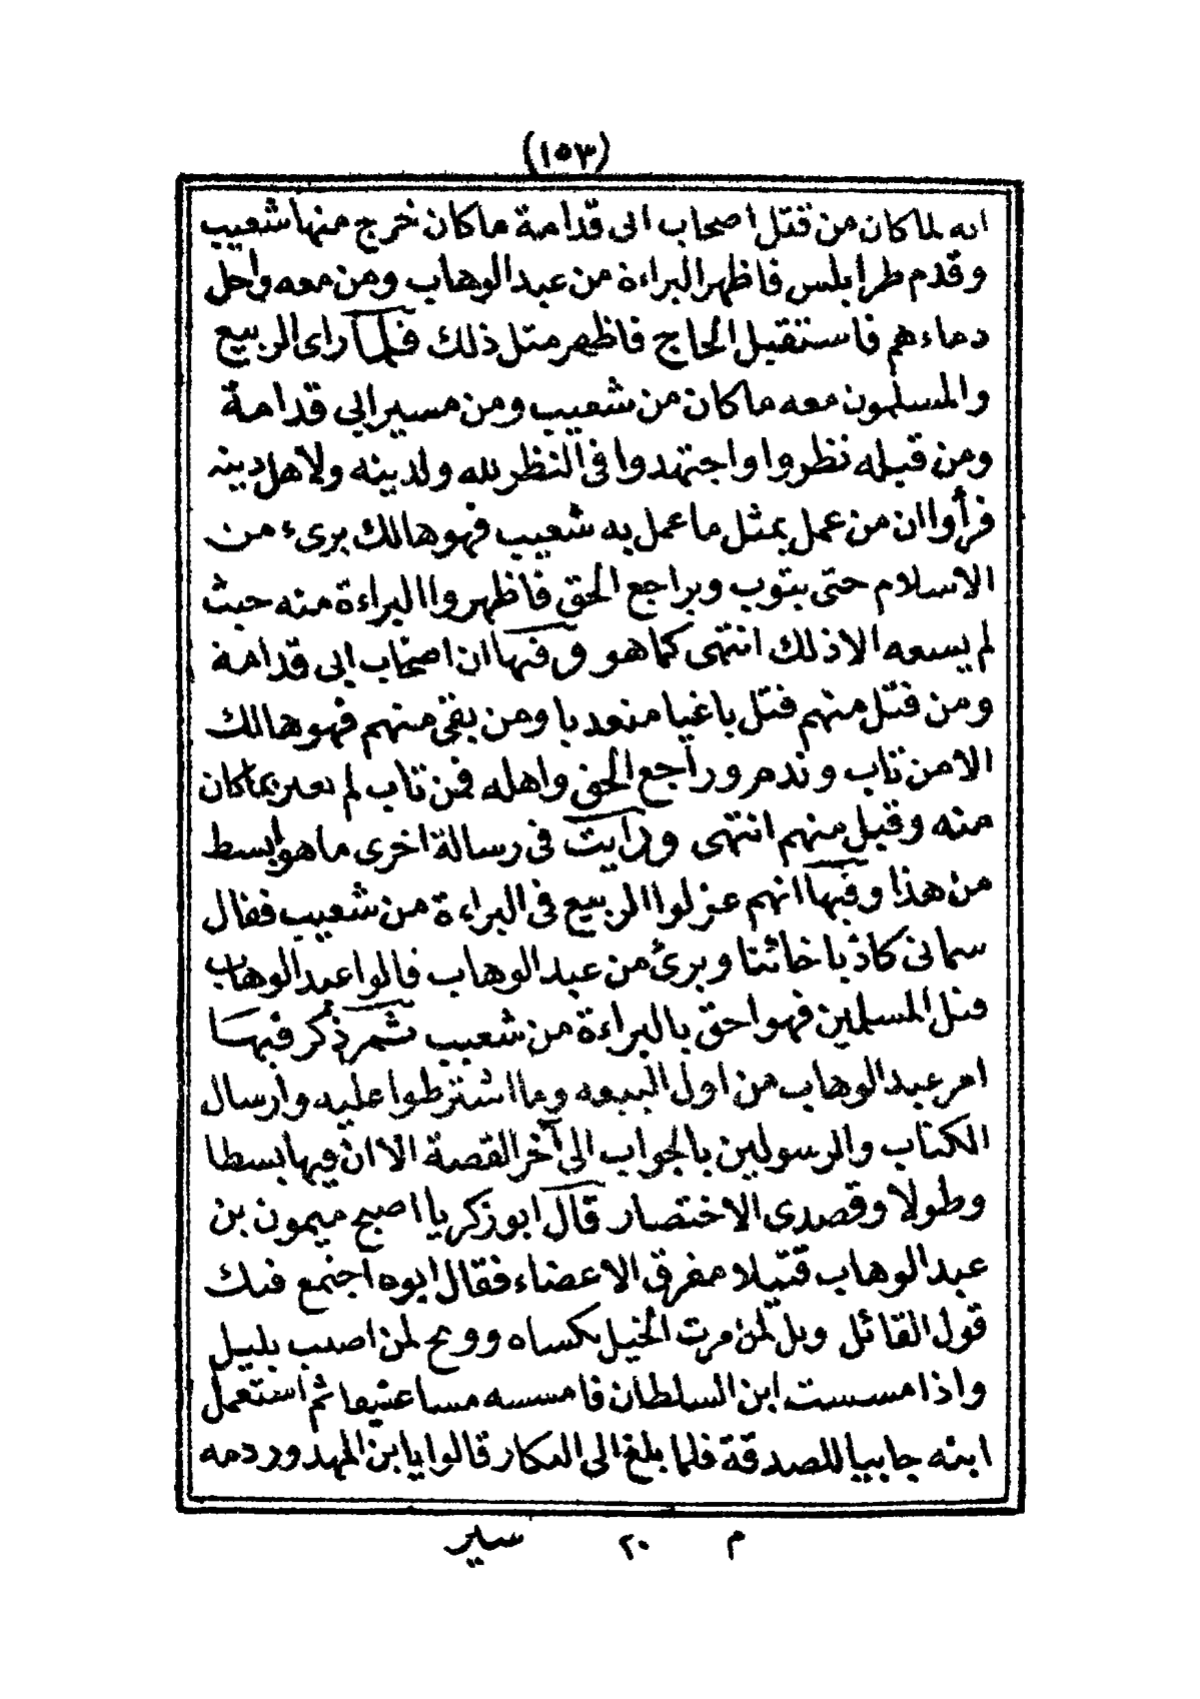 (١٥٣)
انه لما كان من قتل اصحاب ابى قدامة ما كان خرج منها شعيب
وقدم طرابلس فاظهر البراءة من عبد الوهاب ومن معه واحل
دماءهم فاستقبل الحاج فاظهر مثل ذلك فلما راى الربيع
والمسلمون معه ما كان من شعيب ومن مسير ابى قدامة
ومن قبله نظروا واجتهدوا فى النظر لله ولدينه ولاهل دينه
فرأوا ان من عمل بمثل ما عمل به شعيب فهو هالك برىء من
الاسلام حتى يتوب ويراجع الحق فاظهروا البراءة منه حيث
لم يسعه الا ذلك انتهى كما هو وفيها ان اصحاب ابى قدامة
ومن قتل منهم قتل باغيا متعديا ومن بقى منهم فهو هالك
الا من تاب وندم وراجع الحق واهله فمن تاب لم يعير بما كان
منه وقبل منهم انتهى ورأيت فى رسالة اخرى ما هو ابسط
من هذا وفيها انهم عزلوا الربيع فى البراءة من شعيب فقال
سمانى كاذبا خائنا وبرئ من عبد الوهاب قالوا عبد الوهاب
قتل المسلمين فهو احق بالبراءة من شعيب ثم ذكر فيها
امر عبد الوهاب من اول البيعه وما اشترطوا عليه وارسال
الكتاب والرسولين بالجواب الى آخر القصة الا ان فيها بسطا
وطولا وقصدى الاختصار قال ابو زكريا اصبح ميمون بن
عبد الوهاب قتيلا مفرق الاعضاء فقال ابوه اجتمع فيك
قول القائل ويل لمن مرت الخيل بكساه وويح لمن اصيب بليل
واذا مسست ابن السلطان فامسسه مسا عنيفا ثم استعمل
ابنه جابيا للصدقة فلما بلغ الى العكار قالوا يا ابن المهدور دمه
م ٢٠ سير